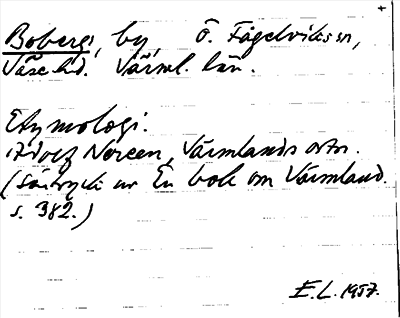 +
Boberg, by, Ö. Fågelviks sn,
Väse hd. Värml. län.
Etymologi.
Adolf Noreen, Värmlands ortn.
(Särtryck ur En bok om Värmland.
s. 382.)
E.L. 1957.